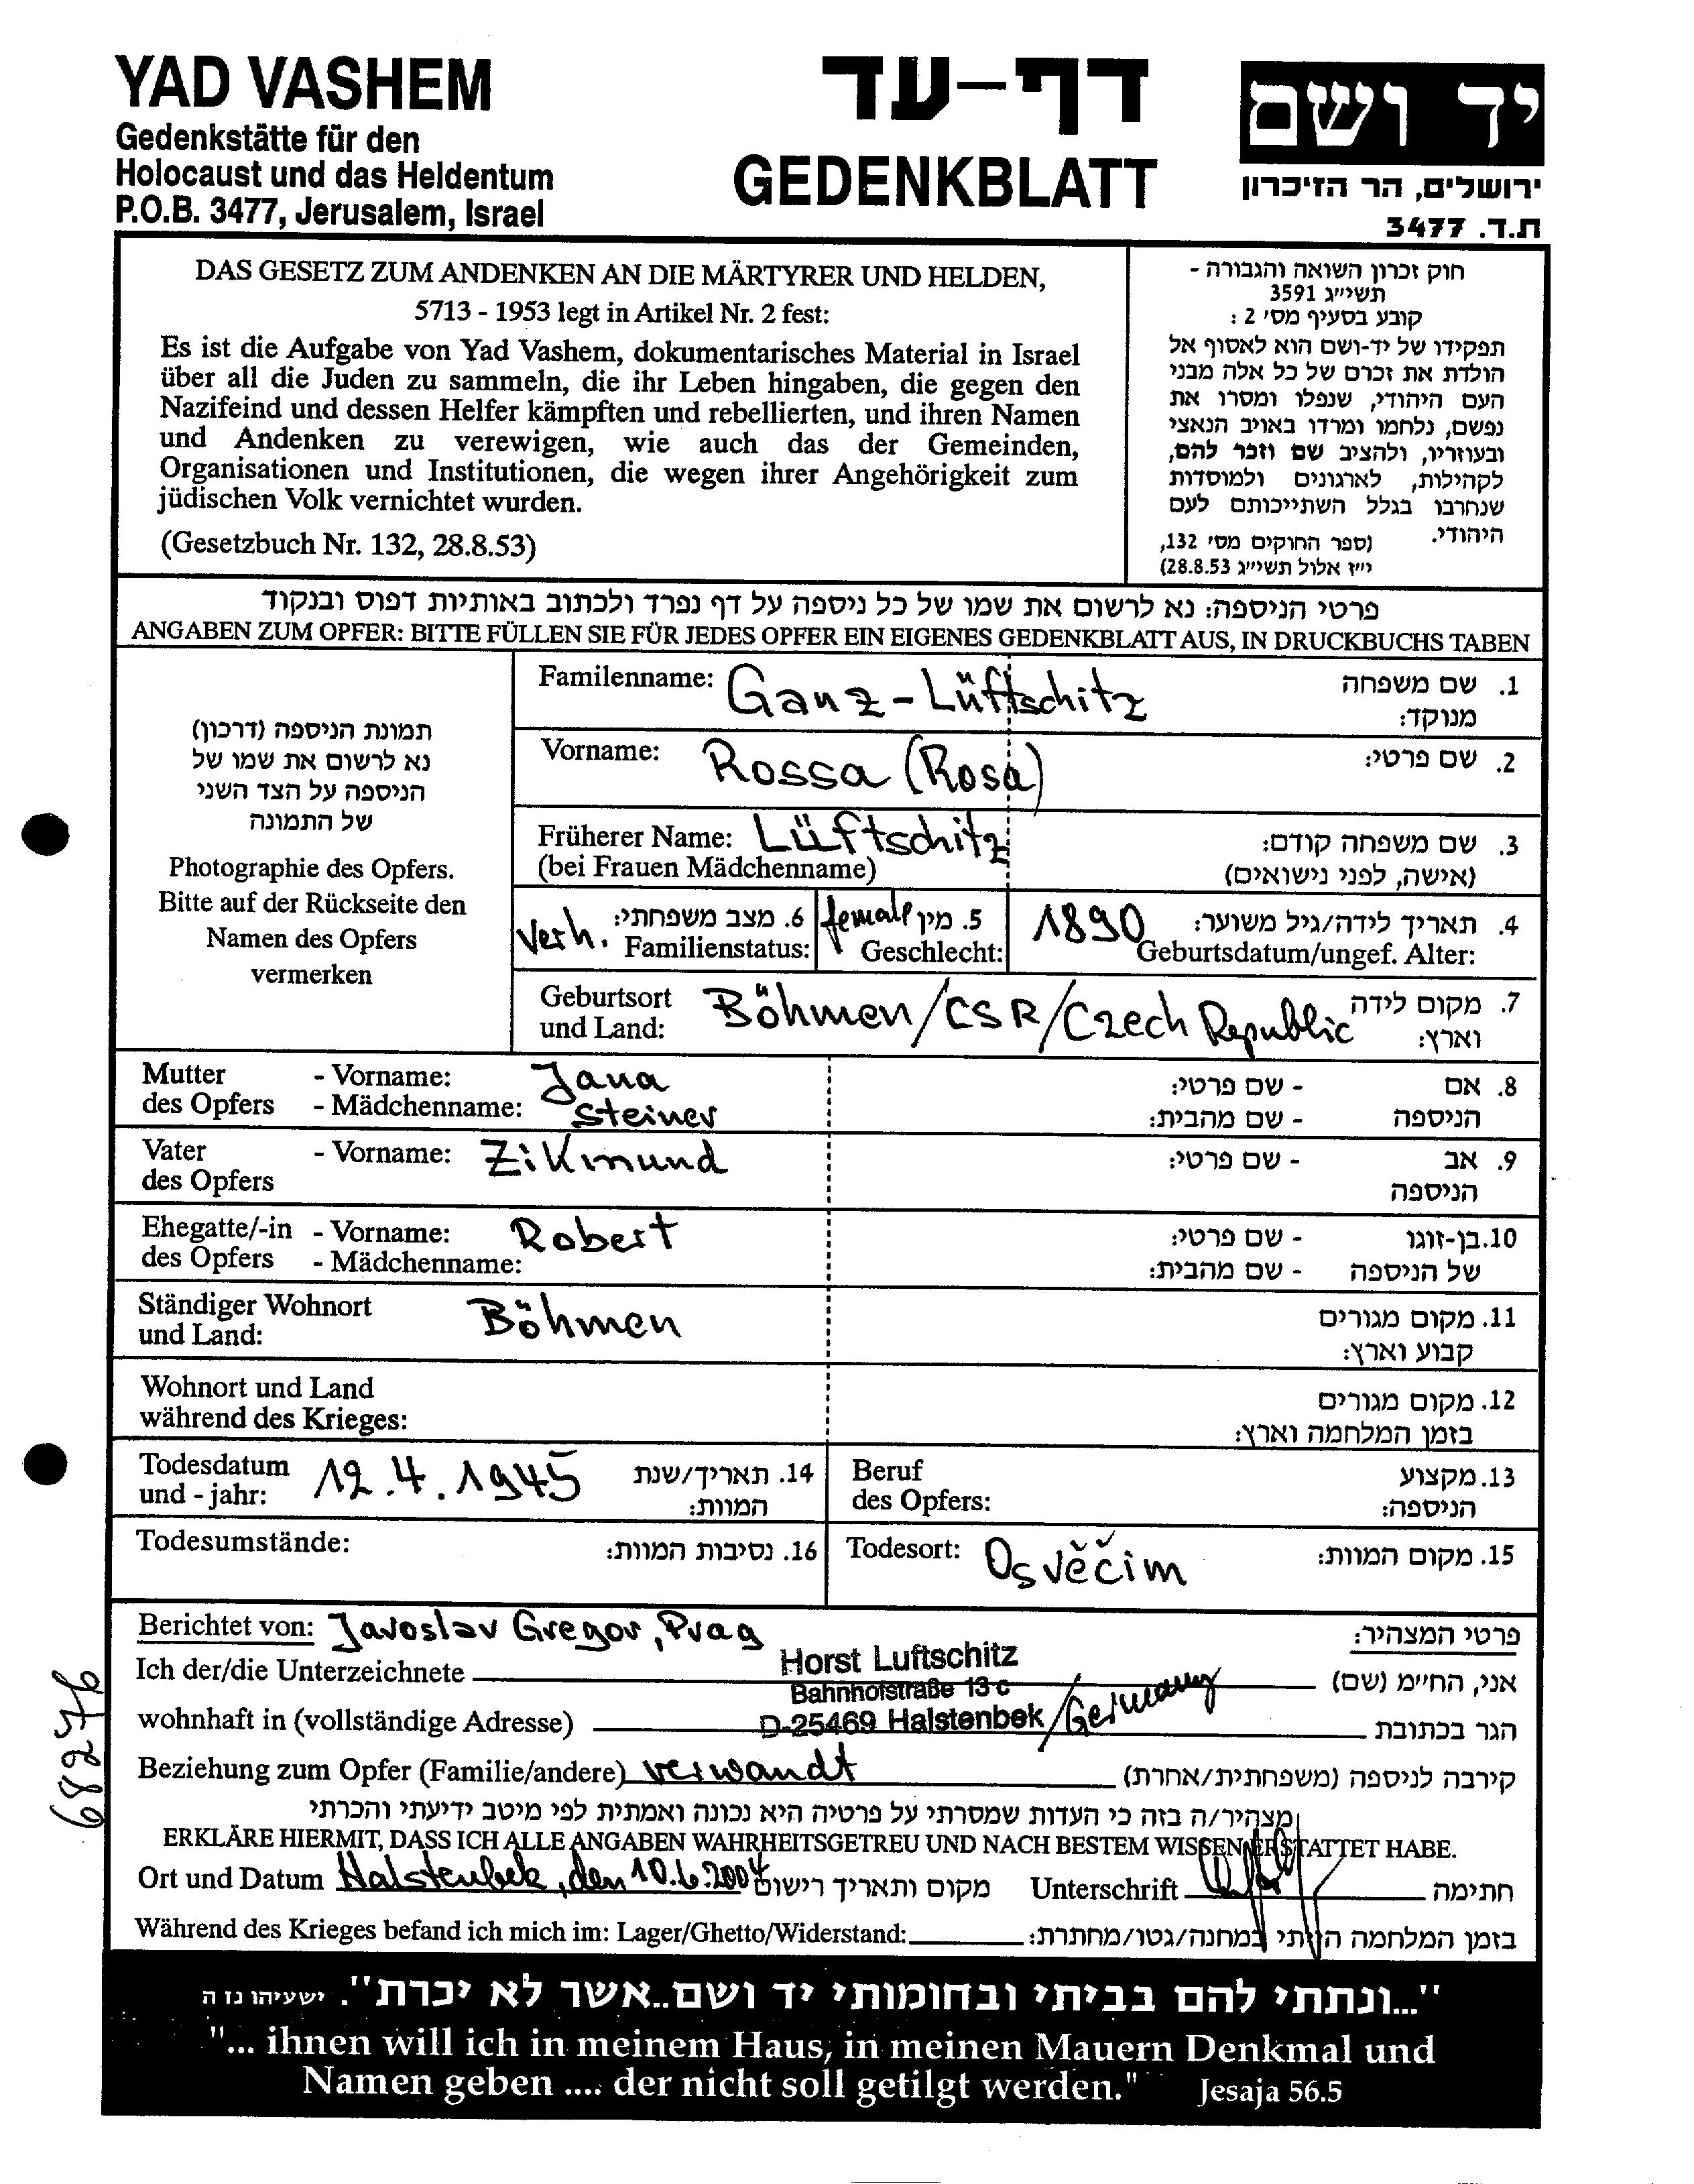 YAD VASHEM
Gedenkstätte für den
Holocaust und das Heldentum
P.O.B. 3477, Jerusalem, Israel
דף-עד
GEDENKBLATT
יד ושם
ירושלים, הר הזיכרון
ת.ד. 3477
DAS GESETZ ZUM ANDENKEN AN DIE MÄRTYRER UND HELDEN,
5713 - 1953 legt in Artikel Nr. 2 fest:
Es ist die Aufgabe von Yad Vashem, dokumentarisches Material in Israel
über all die Juden zu sammeln, die ihr Leben hingaben, die gegen den
Nazifeind und dessen Helfer kämpften und rebellierten, und ihren Namen
und Andenken zu verewigen, wie auch das der Gemeinden,
Organisationen und Institutionen, die wegen ihrer Angehörigkeit zum
jüdischen Volk vernichtet wurden.
(Gesetzbuch Nr. 132, 28.8.53)
חוק זכרון השואה והגבורה -
תשי״ג 3591
קובע בסעיף מס' 2 :
תפקידו של יד-ושם הוא לאסוף אל
הולדת את זכרם של כל אלה מבני
העם היהודי, שנפלו ומסרו את
נפשם, נלחמו ומרדו באויב הנאצי
ובעוזריו, ולהציב שם וזכר להם,
לקהילות, לארגונים ולמוסדות
שנחרבו בגלל השתייכותם לעם
היהודי.
(ספר החוקים מס' 132,
י״ז אלול תשי״ג 28.8.53)
פרטי הניספה: נא לרשום את שמו של כל ניספה על דף נפרד ולכתוב באותיות דפוס ובנקוד
ANGABEN ZUM OPFER: BITTE FÜLLEN SIE FÜR JEDES OPFER EIN EIGENES GEDENKBLATT AUS, IN DRUCKBUCHS TABEN
תמונת הניספה (דרכון)
נא לרשום את שמו של
הניספה על הצד השני
של התמונה
Photographie des Opfers.
Bitte auf der Rückseite den
Namen des Opfers
vermerken
Familenname: Ganz-Lüftschitz 1. שם משפחה
מנוקד:
Vorname: Rossa (Rosa) 2. שם פרטי:
Früherer Name: Lüftschitz 3. שם משפחה קודם:
(bei Frauen Mädchenname) (אישה, לפני נישואים)
verh. 6. מצב משפחתי: female 5. מין 1890 4. תאריך לידה/גיל משוער:
Familienstatus: Geschlecht: Geburtsdatum/ungef. Alter:
Geburtsort Böhmen/CSR/Czech Republic 7. מקום לידה
und Land: וארץ:
Mutter - Vorname: Jana - שם פרטי: 8. אם
des Opfers - Mädchenname: Steiner - שם מהבית: הניספה
Vater - Vorname: Zikmund - שם פרטי: 9. אב
des Opfers הניספה
Ehegatte/-in - Vorname: Robert - שם פרטי: 10.בן-זוגו
des Opfers - Mädchenname: - שם מהבית: של הניספה
Ständiger Wohnort Böhmen 11. מקום מגורים
und Land: קבוע וארץ:
Wohnort und Land 12. מקום מגורים
während des Krieges: בזמן המלחמה וארץ:
Todesdatum 12.4.1945 14. תאריך/שנת Beruf 13.מקצוע
und - jahr: המוות: des Opfers: הניספה:
Todesumstände: 16. נסיבות המוות: Todesort: Osvěčim 15. מקום המוות:
Berichtet von: Jaroslav Gregor, Prag פרטי המצהיר:
Ich der/die Unterzeichnete Horst Luftschitz אני, החי״מ (שם)
Bahnhofstraße 13 c
wohnhaft in (vollständige Adresse) D-25469 Halstenbek/Germany הגר בכתובת
Beziehung zum Opfer (Familie/andere) verwandt קירבה לניספה (משפחתית/אחרת)
מצהיר/ה בזה כי העדות שמסרתי על פרטיה היא נכונה ואמתית לפי מיטב ידיעתי והכרתי
ERKLÄRE HIERMIT, DASS ICH ALLE ANGABEN WAHRHEITSGETREU UND NACH BESTEM WISSEN ERSTATTET HABE.
Ort und Datum Halstenbek, den 10.6.2004 מקום ותאריך רישום Unterschrift חתימה
Während des Krieges befand ich mich im: Lager/Ghetto/Widerstand: בזמן המלחמה הייתי במחנה/גטו/מחתרת:
68276
"...ונתתי להם בביתי ובחומותי יד ושם..אשר לא יכרת". ישעיהו נז ה
"... ihnen will ich in meinem Haus, in meinen Mauern Denkmal und
Namen geben .... der nicht soll getilgt werden." Jesaja 56.5